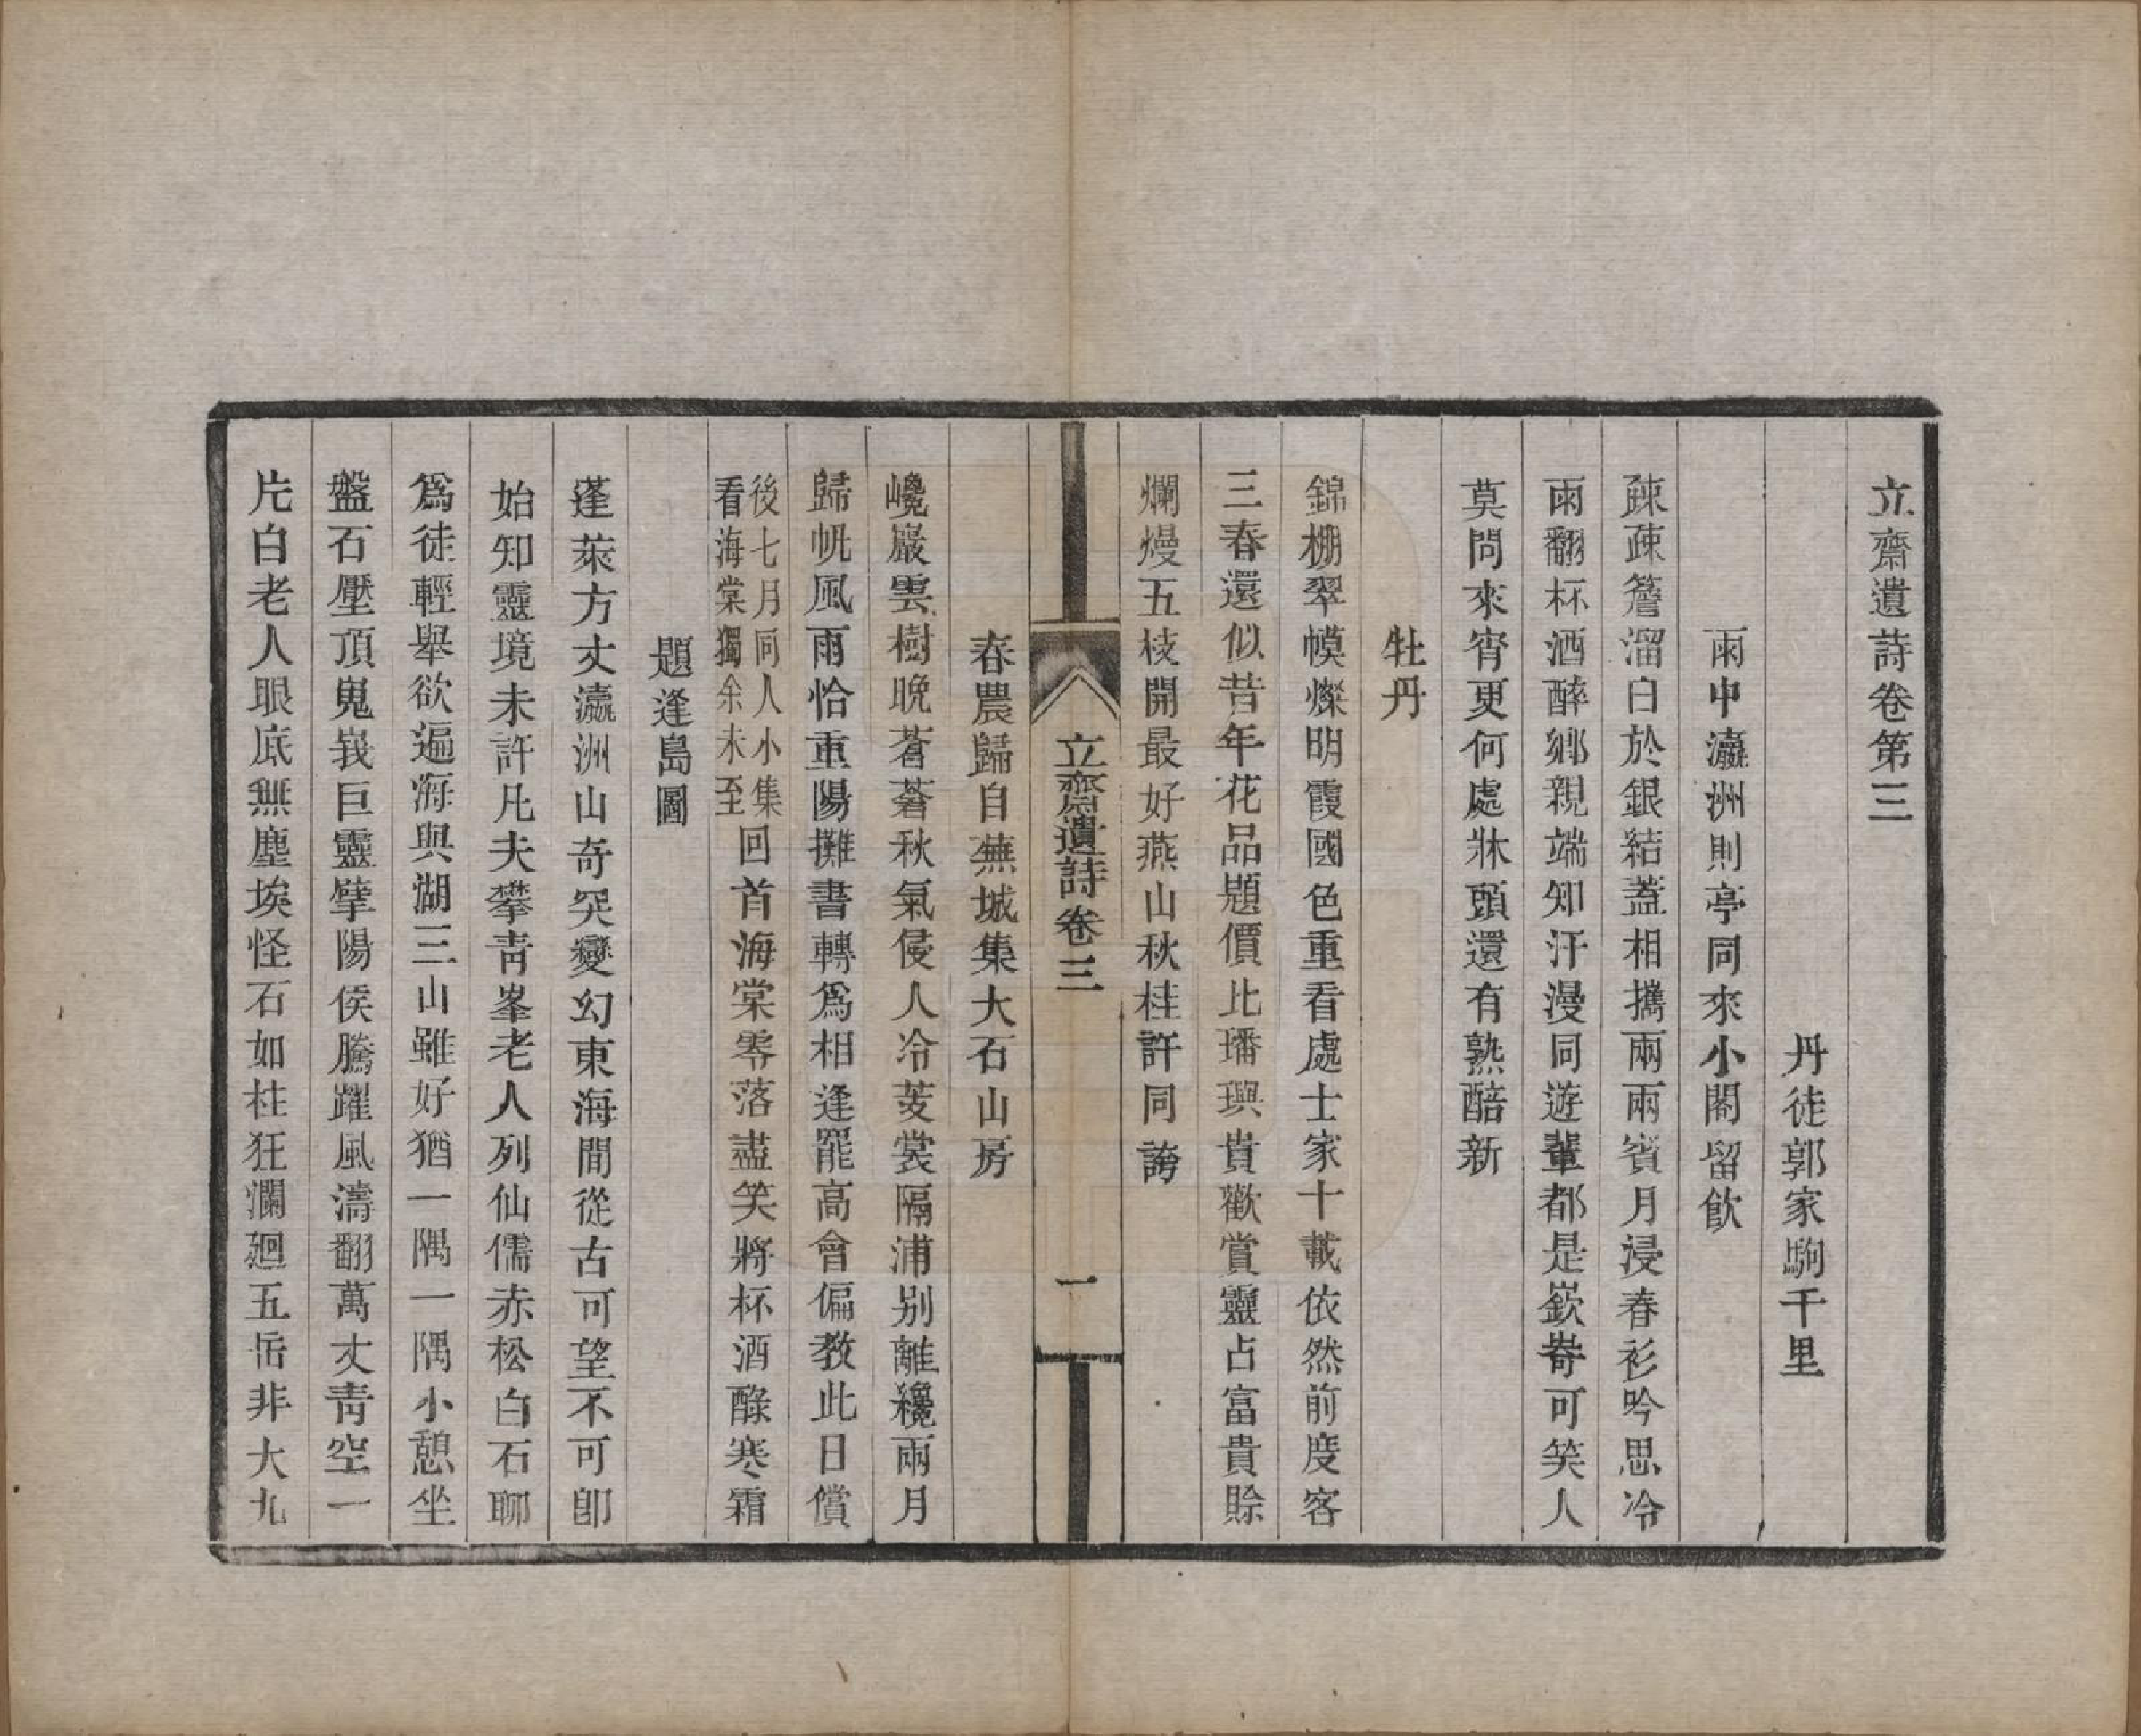 立齋遺詩卷第三
丹徒郭家駒千里
雨中瀛洲則亭同來小閣留飲
疎疎簷溜白於銀結蓋相攜兩兩賓月浸春衫吟思冷
雨翻杯酒醉鄉親端知汗漫同遊輩都是嶔崎可笑人
莫問來宵更何處牀頭還有熟醅新
牡丹
錦棚翠幙燦明霞國色重看處士家十載依然前度客
三春還似昔年花品題價比璠璵貴歡賞靈占富貴賒
爛熳五枝開最好燕山秋桂許同誇
立齋遺詩卷三
一
春農歸自蕪城集大石山房
巉巖雲樹晚蒼蒼秋氣侵人冷芰裳隔浦別離纔兩月
歸帆風雨恰重陽攤書轉爲相逢罷高會偏教此日償
後七月同人小集
看海棠獨余未至
回首海棠零落盡笑將杯酒醁寒霜
題逢島圖
蓬萊方丈瀛洲山奇突變幻東海間從古可望不可卽
始知靈境未許凡夫攀靑峯老人列仙儒赤松白石聊
爲徒輕舉欲遍海與湖三山雖好猶一隅一隅小憩坐
盤石壓頂嵬峩巨靈擘陽侯騰躍風濤翻萬丈靑空一
片白老人眼底無塵埃怪石如柱狂瀾廻五岳非大九